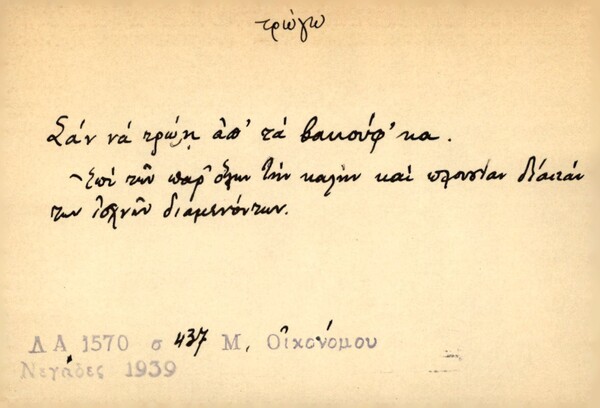 τρώγω
Σάν νά τρώῃ ἀπ' τά βακούφ'κα.
- Ἐπί τῶν παρ' ὅλην τήν καλήν καί πλουσίαν δίαιτάν
των ἰσχνῶν διαμενόντων.
ΛΑ 1570 σ 437 Μ. Οἰκονόμου
Νεγάδες 1939